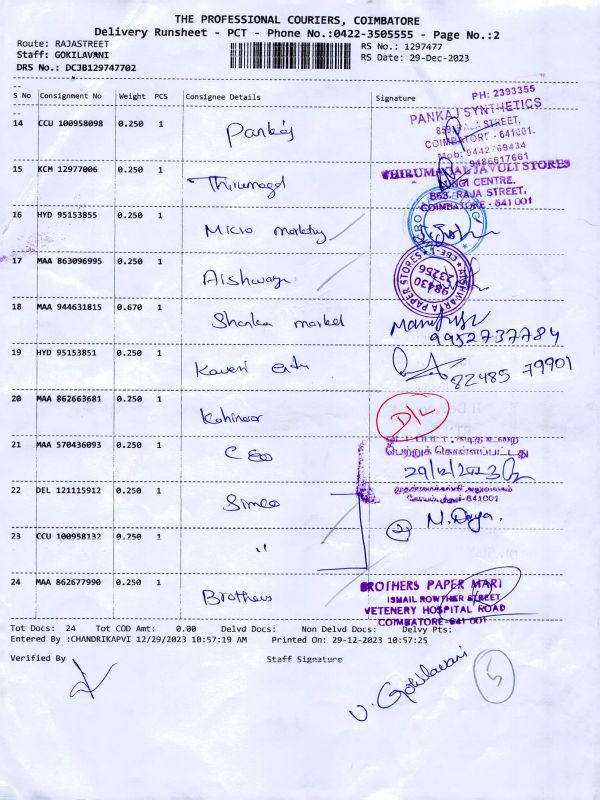 THE PROFESSIONAL COURIERS, COIMBATORE
Delivery Runsheet - PCT - Phone No.:0422-3505555 - Page No.:2
Route: RAJASTREET
RS No.: 1297477
Staff: GOKILAVANI
RS Date: 29-Dec-2023
DRS No.: DCJB129747702
S No Consignment No Weight PCS Consignee Details Signature
PH: 2393355
PANKAJ SYNTHETICS
14 CCU 100958098 0.250 1 Pankaj
RAJA STREET,
COIMBATORE - 641001.
Mob: 9442769434
9486617661
15 KCM 12977006 0.250 1 Thirumagal
THIRUMAGAL JAVULI STORES
CENTRE,
RAJA STREET,
COIMBATORE - 641 001
16 HYD 95153855 0.250 1 Micro marketing
17 MAA 863096995 0.250 1 Aishwarya
AISHWARYA PAPER STORES CBE-1
98430
23256
18 MAA 944631815 0.670 1 Market
9952737784
19 HYD 95153851 0.250 1 Kaveri
82485 79901
20 MAA 862663681 0.250 1 Kohinoor
D/L
21 MAA 570436093 0.250 1 CEO
பெற்றுக் கொள்ளப்பட்டது
29/12/2023
22 DEL 121115912 0.250 1 Simco
641001
2 N. Divya.
23 CCU 100958132 0.250 1 "
24 MAA 862677990 0.250 1 Brothers
BROTHERS PAPER MART
ISMAIL ROWTHER STREET
VETENERY HOSPITAL ROAD
COIMBATORE-641 001
Tot Docs: 24 Tot COD Amt: 0.00 Delvd Docs: Non Delvd Docs: Delvy Pts:
Entered By :CHANDRIKAPVI 12/29/2023 10:57:19 AM Printed On :29-12-2023 10:57:25
Verified By Staff Signature
V. Gokilavani
5